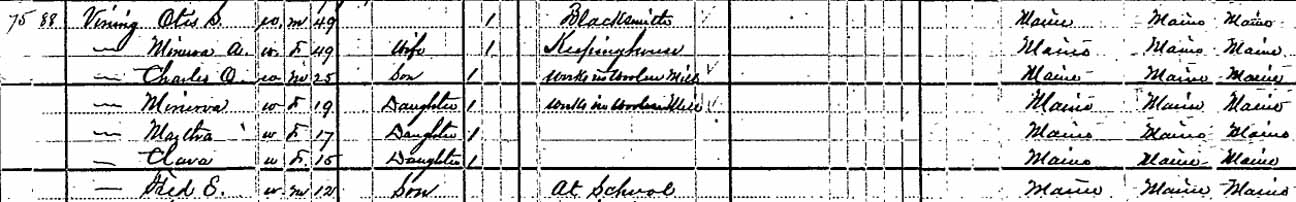 75 88 Vining Otis S. w. m 49 1 Blacksmith Maine Maine Maine
— Minerva A. w. F 49 Wife 1 Keeping house Maine Maine Maine
— Charles O. w m 25 Son 1 Works in Woolen Mill Maine Maine Maine
— Minerva w F 19 Daughter 1 Works in Woolen Mill Maine Maine Maine
— Martha w F 17 Daughter 1 Maine Maine Maine
— Clara w F. 15 Daughter 1 Maine Maine Maine
— Fred E. w. m 12 Son At School Maine Maine Maine